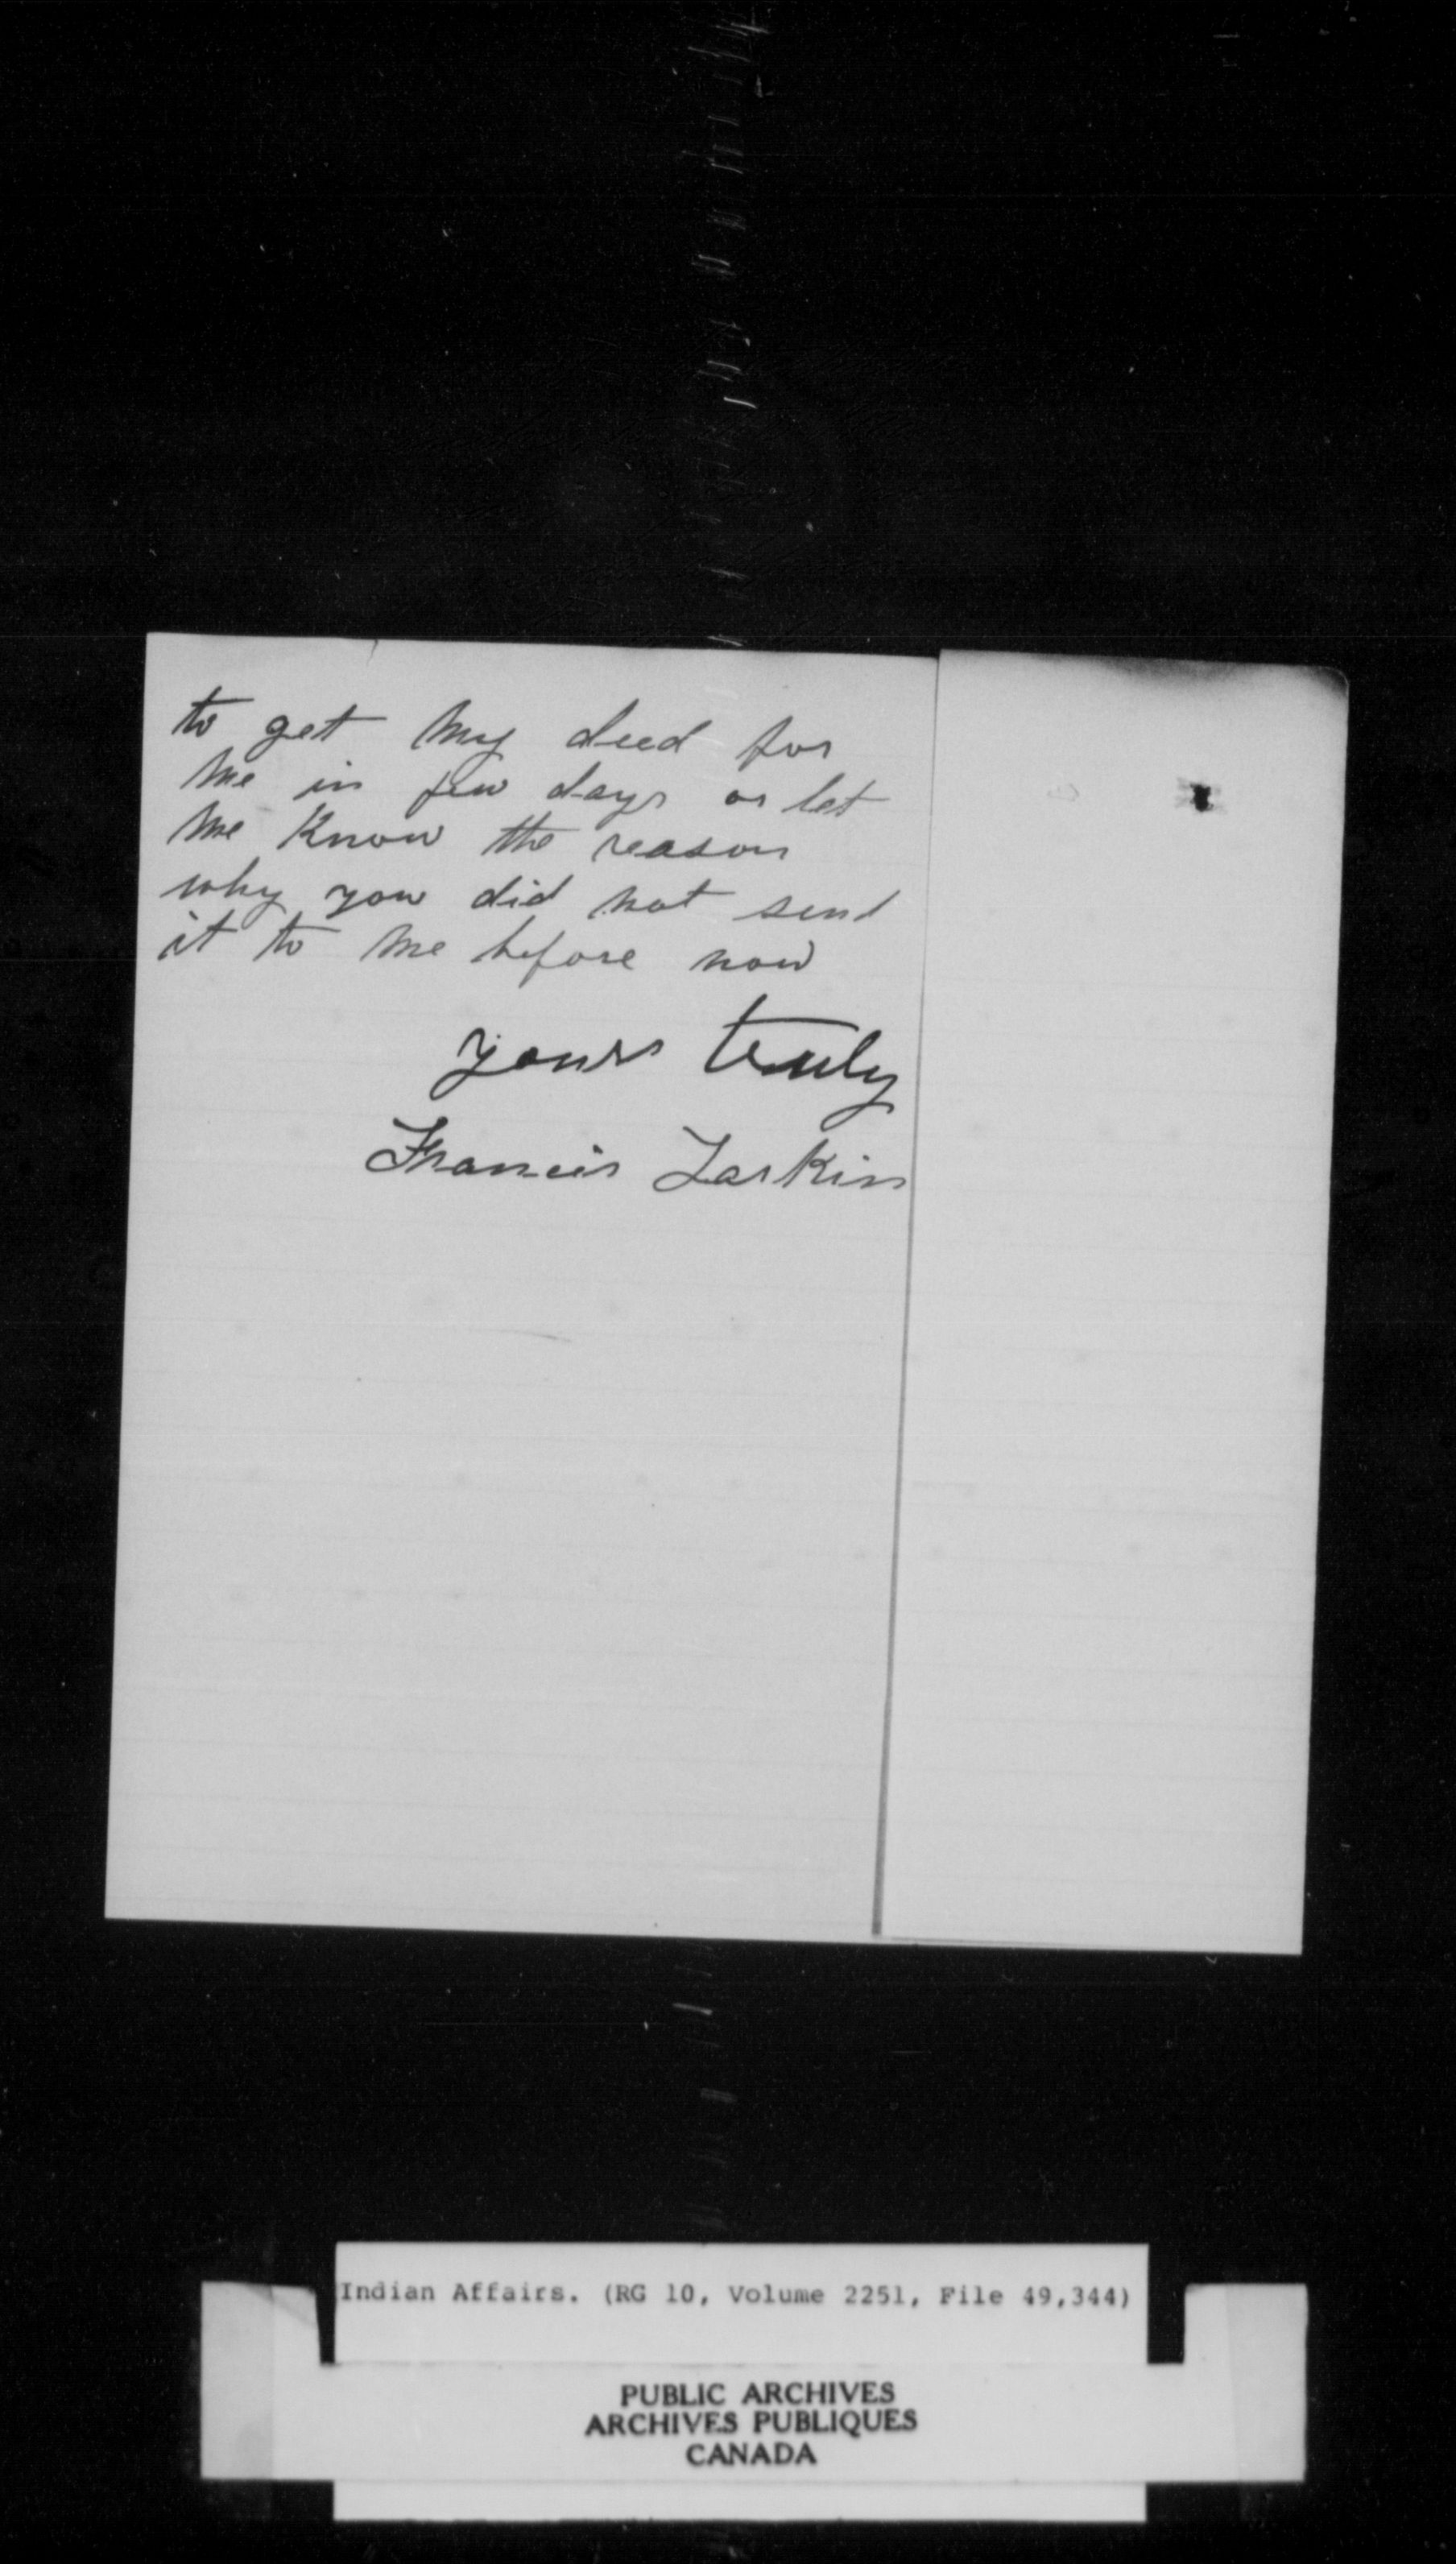 to get my deed for
me in few days or let
me Know the reason
why you did not send
it to me before now
yours truly
Francis Larkin
Indian Affairs. (RG 10, Volume 2251, File 49,344)
PUBLIC ARCHIVES
ARCHIVES PUBLIQUES
CANADA